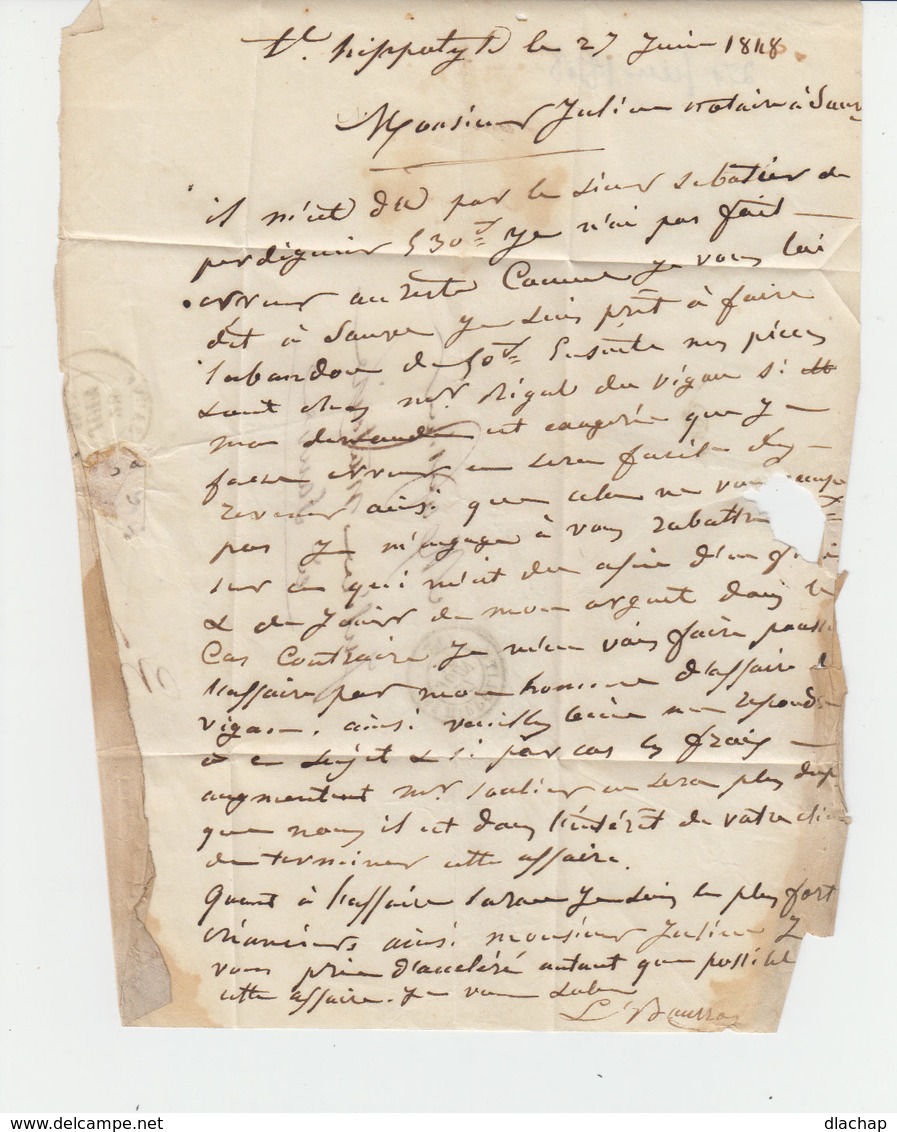 St hippolyte le 27 Juin 1848
Monsieur Julien notaire à Sauve
il m'est du par le sieur sabatier de
perdiguier 530 f Je n'ai pas fait
erreur au reste Comme je vous l'ai
dit à Sauve Je suis prêt à faire
l'abandon de 50 f Ensuite mes pièces
sont chez mr Rigal du vigan si
ma demande est exagérée que je
fasse erreur en sera facile d'y
revenir ainsi que cela ne vous
pas Je m'engage à vous rabattre
sur ce qui m'est du afin d'en
& de Jouir de mon argent dans le
Cas Contraire Je m'en vais faire
l'affaire par mon homme d'affaire
vigan, ainsi veuillez bien me repondre
à ce sujet & si par cas les frais
augmentent mr soulier en sera plus
que nous il est dans l'intérêt de votre
de terminer cette affaire.
Quant à l'affaire Je suis le plus fort
créancier, ainsi monsieur Julien J
vous prie d'acceléré autant que possible
cette affaire. Je vous salue
dlachap